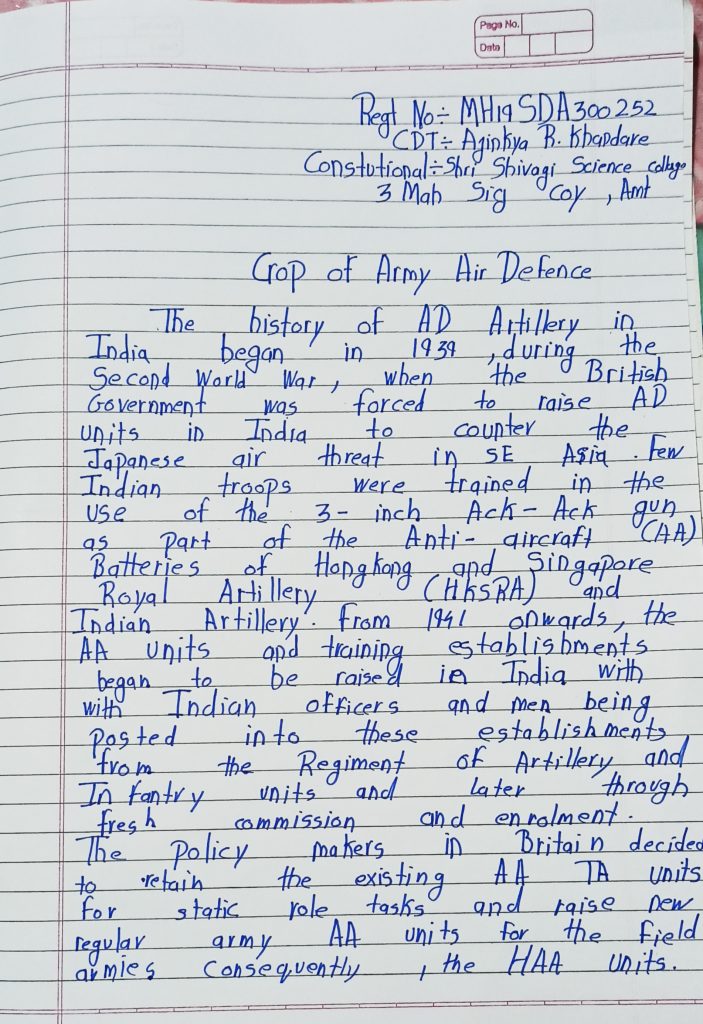 Page No.
Date
Regt No÷ MH19SDA300252
CDT÷ Aginkya R. Khandare
Constutional÷Shri Shivagi Science college
3 Mah Sig coy , Amt
Crop of Army Air Defence
The history of AD Artillery in
India began in 1939 , during the
Second World War , when the British
Government was forced to raise AD
units in India to counter the
Japanese air threat in SE Asia . Few
Indian troops were trained in the
use of the 3- inch Ack-Ack gun
as part of the Anti- aircraft (AA)
Batteries of Hongkong and Singapore
Royal Artillery (HKSRA) and
Indian Artillery. From 1941 onwards, the
AA units and training establishments
began to be raised in India with
with Indian officers and men being
posted into these establishments,
from the Regiment of Artillery and
Infantry units and later through
fresh commission and enrolment.
The policy makers in Britain decided
to retain the existing AA TA units
for static role tasks and raise new
regular army AA units for the field
armies consequently , the HAA units.